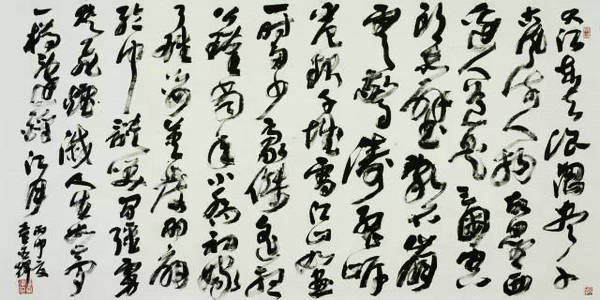 大江東去浪淘盡千
古風流人物故壘西
邊人道是三國周
郎赤壁亂石崩
雲驚濤裂岸
卷起千堆雪江山如畫
一時多少豪傑遙想
公瑾當年小喬初嫁
了雄姿英發羽扇
綸巾談笑間強虜
灰飛煙滅人生如夢
一樽還酹江月
丙申夏